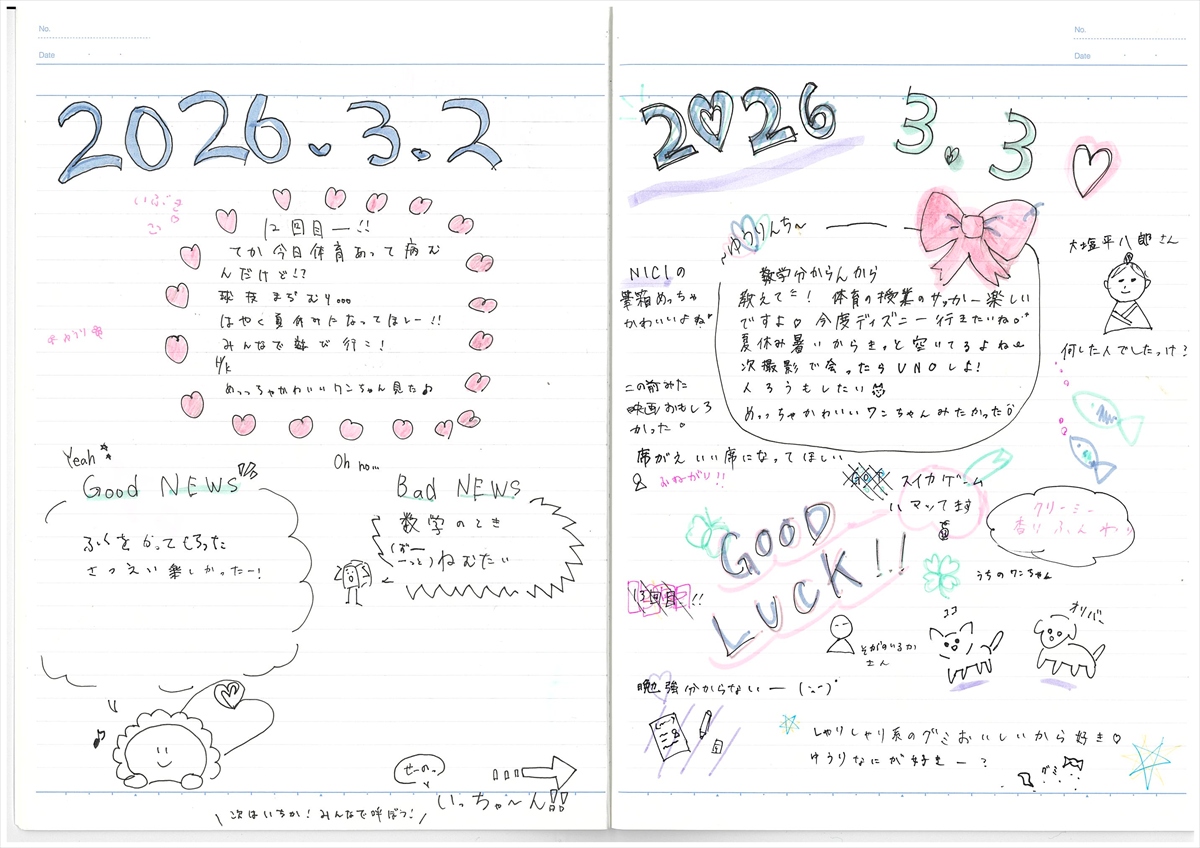 No.
Date
2026.3.2
いぶき
12回目ー!!
てか今日体育あって病む
んだけど!?
球技まぢむり...
はやく夏休みになってほしー!!
みんなで遊び行こ!
めっっちゃかわいいワンちゃん見た♪
ゆうり
Yeah
Good NEWS
ふくをかってもらった
さつえい楽しかったー!
Oh no...
Bad NEWS
数学のとき
ねむたい
せーのっ
いっちゃ〜ん!!
\ 次はいちか!みんなで呼ぼう! /
No.
Date
2026 3.3
ゆうりんち〜
数学分からんから
教えてー! 体育の授業のサッカー楽しい
ですよ♡ 今度ディズニー行きたいね
夏休み暑いからきっと空いてるよね
次撮影で会ったらUNOしよ!
人ろうもしたい
めっっちゃかわいいワンちゃんみたかった
NICIの
筆箱めっちゃ
かわいいよね
この前みた
映画おもしろ
かった
席がえいい席になってほしい
おねがい!!
大塩平八郎さん
何した人でしたっけ?
スイカゲーム
ハマってます
クリーミー
香りふんわり
GOOD
LUCK!!
13回目!!
うちのワンちゃん
ココ
オリバー
そがのいるか
さん
勉強分からないー
しゃりしゃり系のグミおいしいから好き♡
ゆうりなにが好きー?
グミ